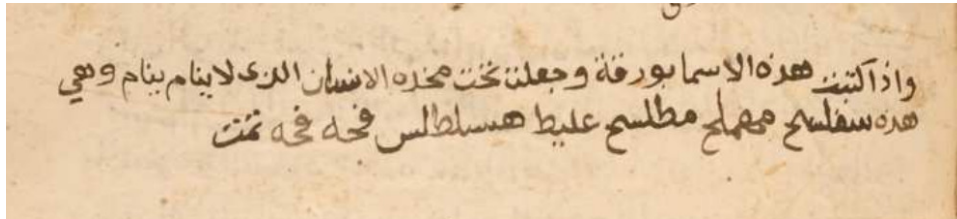 واذا كتبت هذه الاسما بورقة وجعلت تحت مخده الانسان الذى لا ينام ينام وهي
هده سفلسح مهملح مطلسح عليط هسلطالس فحه فحه تمت